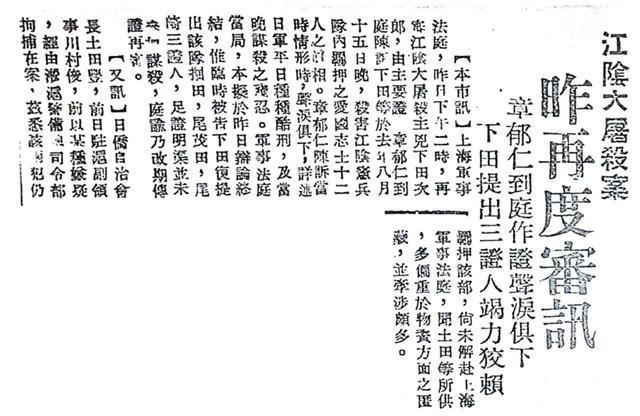 江陰大屠殺案
昨再度審訊
章郁仁到庭作證聲淚俱下
下田提出三證人竭力狡賴
【本市訊】上海軍事
法庭，昨日下午二時，再
審江陰大屠殺主兇下田次
郎，由主要證 章郁仁到
庭陳訴下田等於去年八月
十五日晚，殺害江陰憲兵
隊內羈押之愛國志士十二
人之眞相。章郁仁陳訴當
時情形時，聲淚俱下，詳述
日軍平日種種酷刑，及當
晚謀殺之殘忍。軍事法庭
當局，本擬於昨日辯論終
結，惟臨時被害下田復提
出該隊田，尾茂田，尾
崎三證人，足證明渠並未
謀殺，庭諭乃改期傳
證再審。
【又訊】日僑自治會
長土田豐，前日駐滬副領
事川村俊，前以某種嫌疑
，經由淞滬警備司令部
拘捕在案，茲悉該犯仍
羈押該部，尚未解赴上海
軍事法庭，聞土田等所供
，多偏重於物資方面之匿
藏，並牽涉頗多。